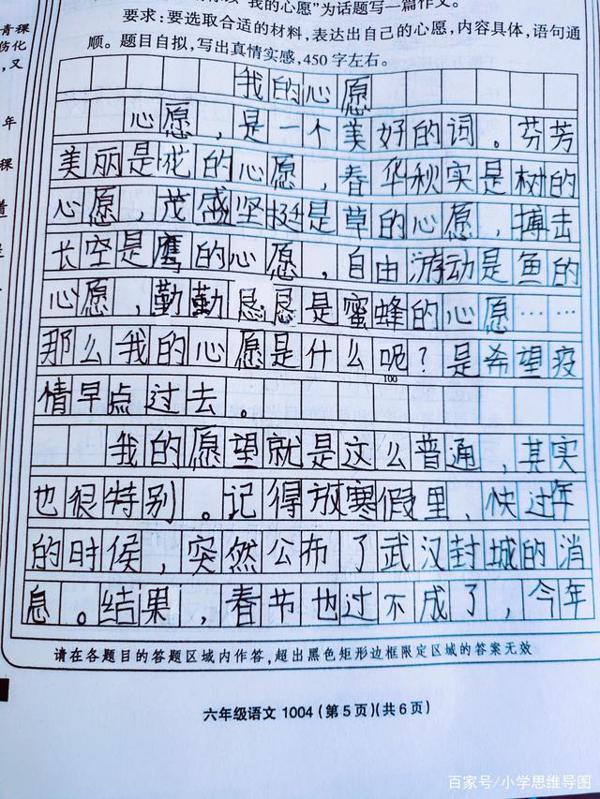 “我的心愿”为话题写一篇作文。
青稞
要求：要选取合适的材料，表达出自己的心愿，内容具体，语句通
伤化
顺。题目自拟，写出真情实感，450字左右。
，又
我的心愿
心愿，是一个美好的词。芬芳
年
美丽是花的心愿，春华秋实是树的
稞
心愿，茂盛坚挺是草的心愿，搏击
长空是鹰的心愿，自由游动是鱼的
心愿，勤勤恳恳是蜜蜂的心愿……
那么我的心愿是什么呢？是希望疫
100
情早点过去。
我的愿望就是这么普通，其实
也很特别。记得放寒假里，快过年
的时候，突然公布了武汉封城的消
息。结果，春节也过不成了，今年
请在各题目的答题区域内作答，超出黑色矩形边框限定区域的答案无效
六年级语文 1004（第5页）（共6页）
百家号/小学思维导图